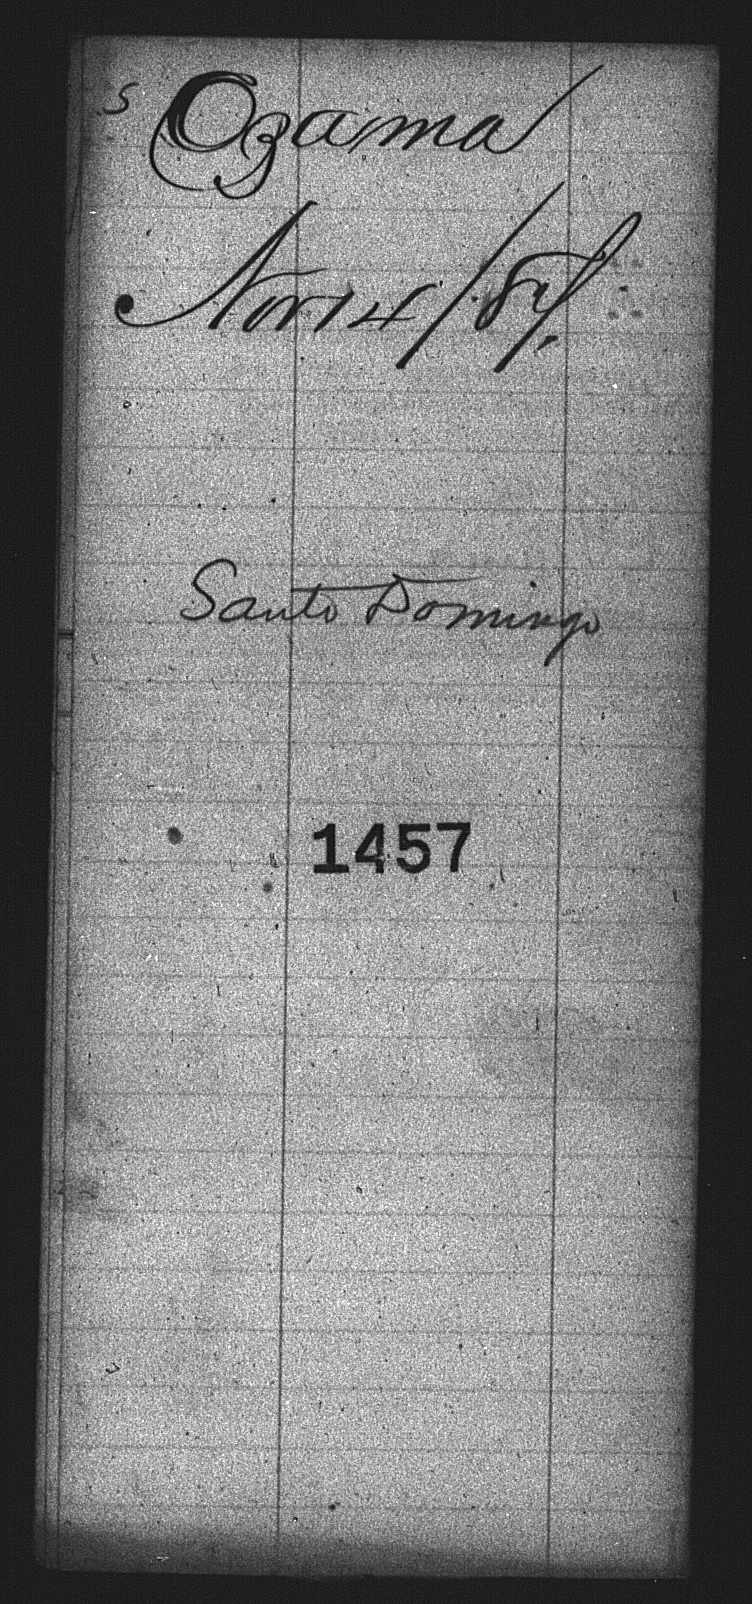 S Ozama
Nov 14/87.
Santo Domingo
1457